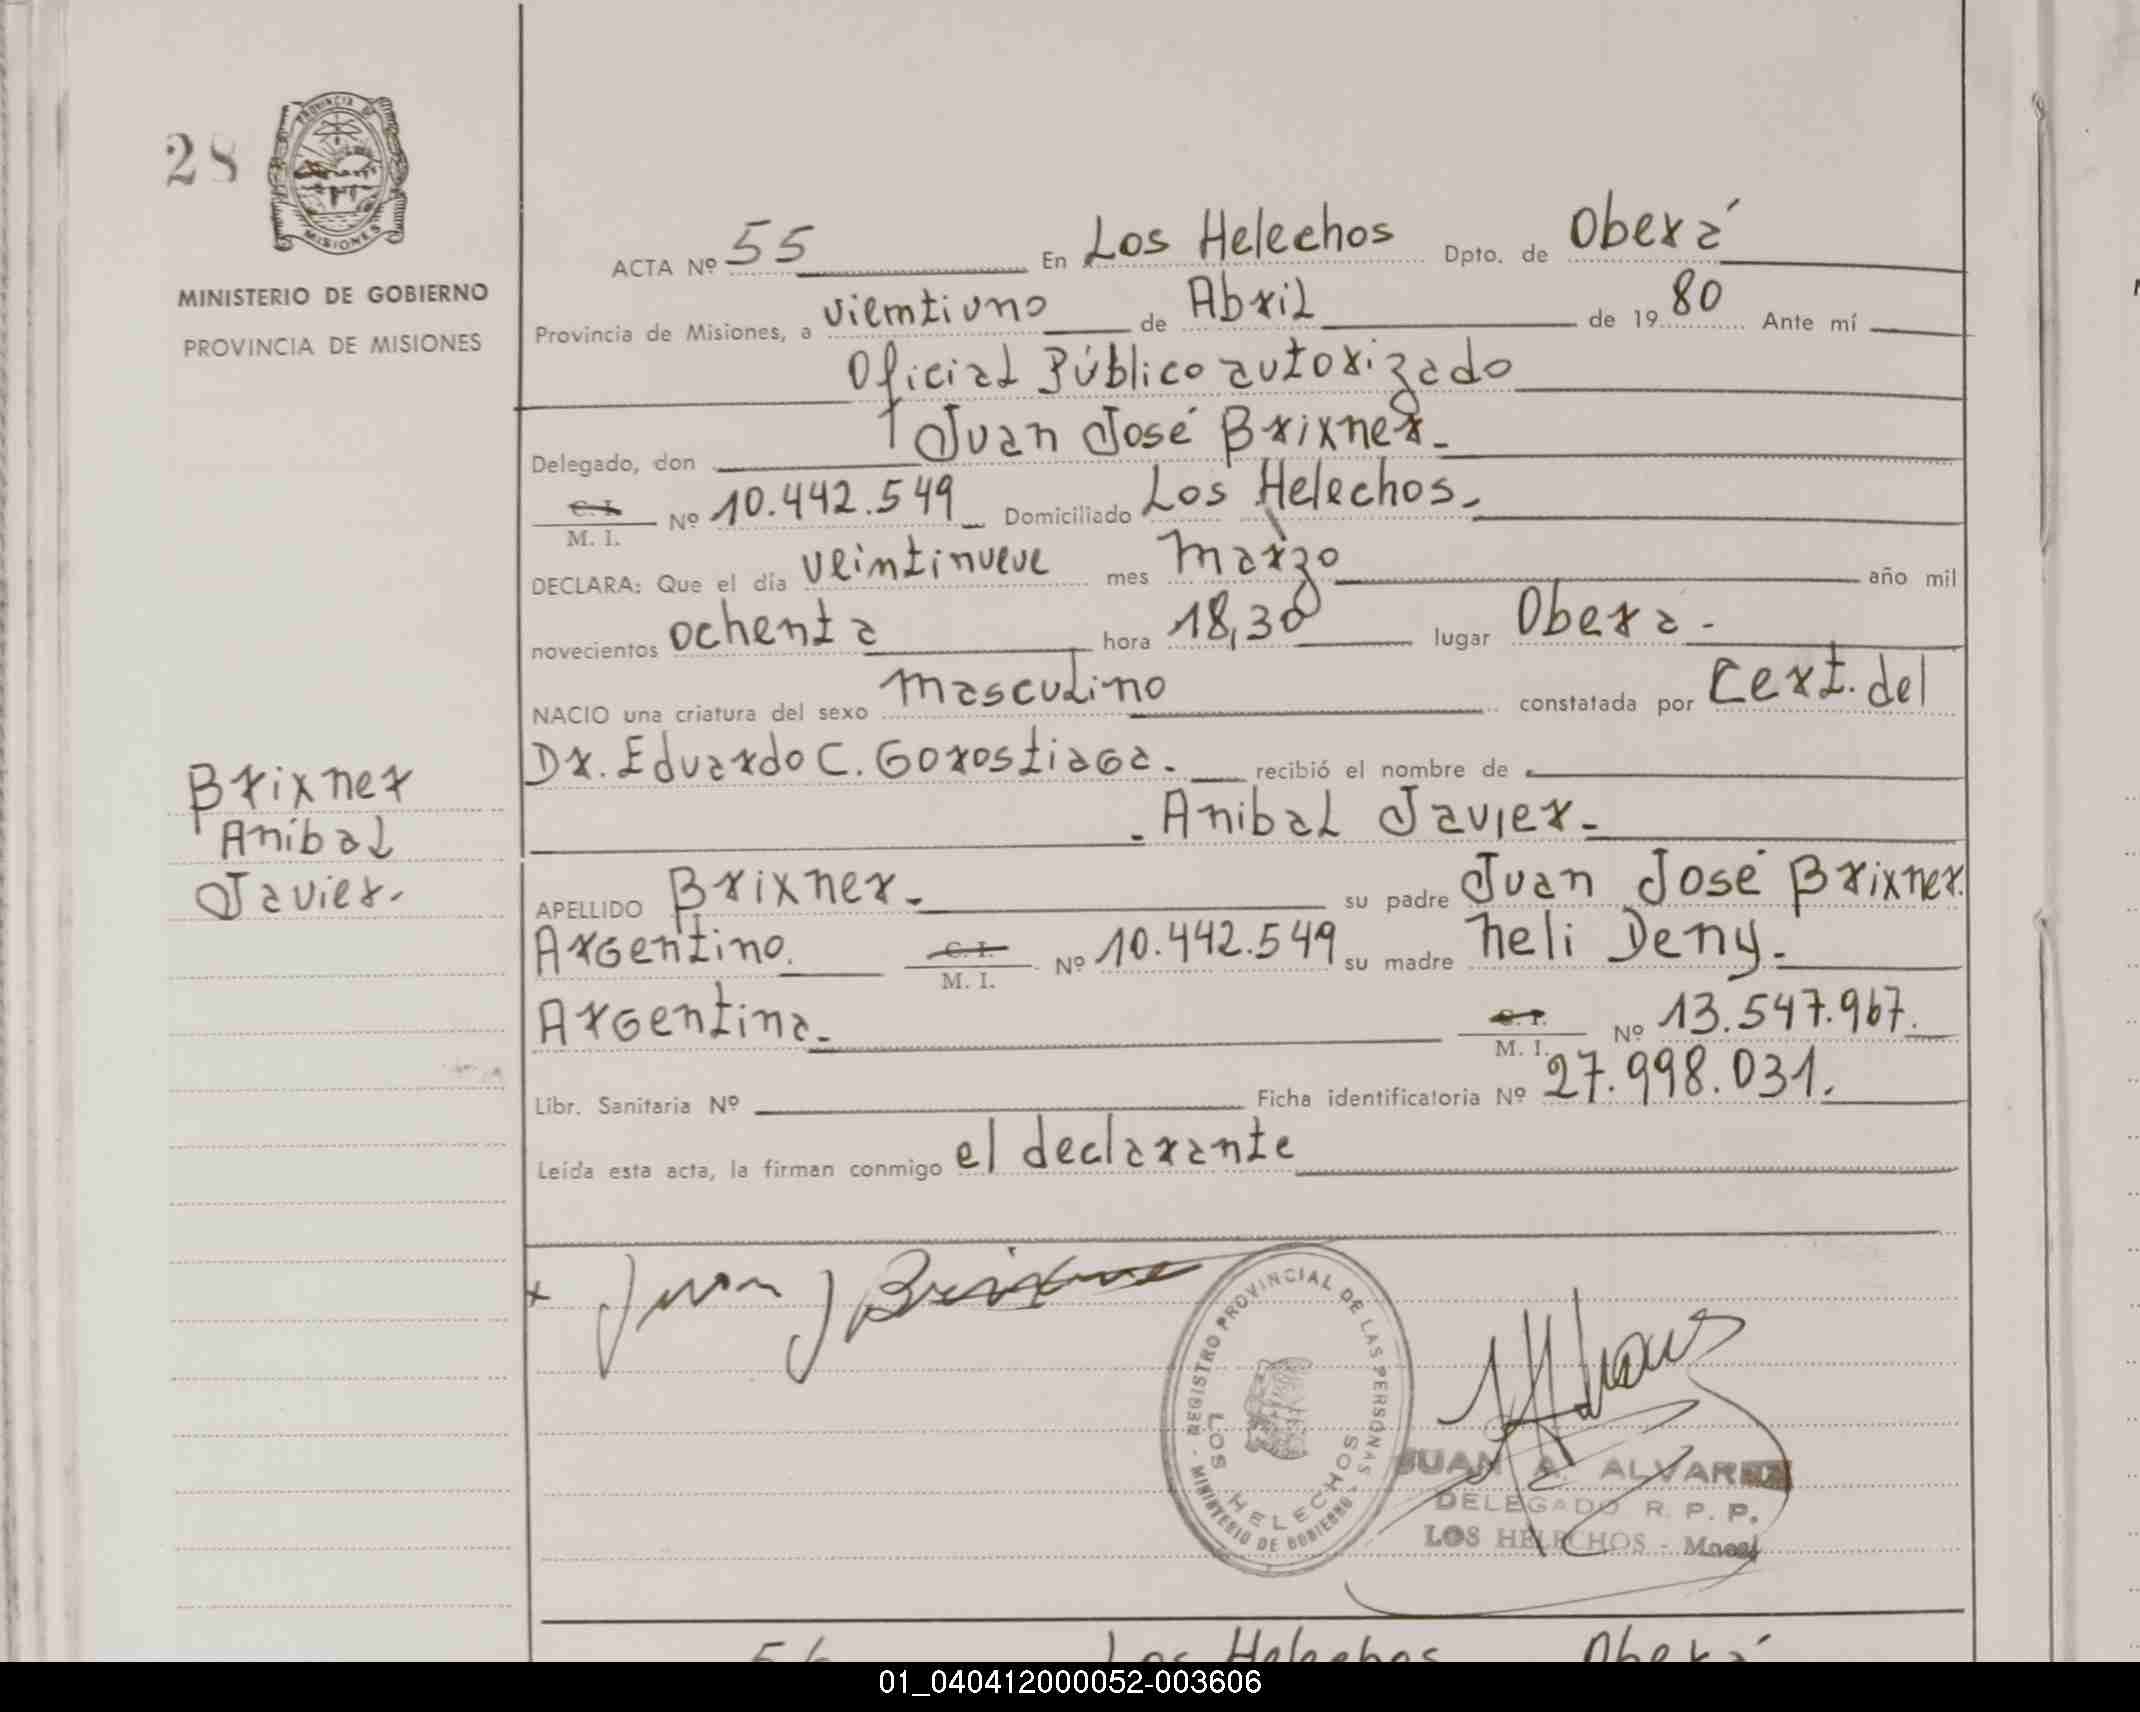 28
PROVINCIA DE
MISIONES
MINISTERIO DE GOBIERNO
PROVINCIA DE MISIONES
Brixner
Anibal
Javier.
ACTA Nº 55 En Los Helechos Dpto. de Oberá
Provincia de Misiones, a viemtiuno de Abril de 1980 Ante mí
Oficial Público autorizado
Delegado, don Juan José Brixner.
C. I.
M. I. Nº 10.442.549 Domiciliado Los Helechos.
DECLARA: Que el día veintinueve mes Marzo año mil
novecientos ochenta hora 18,30 lugar Obera.
NACIO una criatura del sexo masculino constatada por Cert. del
Dr. Eduardo C. Gorostiaga. recibió el nombre de
Anibal Javier.
APELLIDO Brixner. su padre Juan José Brixner.
Argentino. C. I.
M. I. Nº 10.442.549 su madre Neli Deny.
Argentina. C. I.
M. I. Nº 13.547.967.
Libr. Sanitaria Nº Ficha identificatoria Nº 27.998.031.
Leída esta acta, la firman conmigo el declarante
x Juan J Brixner
REGISTRO PROVINCIAL DE LAS PERSONAS - MINISTERIO DE GOBIERNO -
LOS HELECHOS
JUAN A. ALVAREZ
DELEGADO R. P. P.
LOS HELECHOS -
56 Los Helechos Oberá
01_040412000052-003606